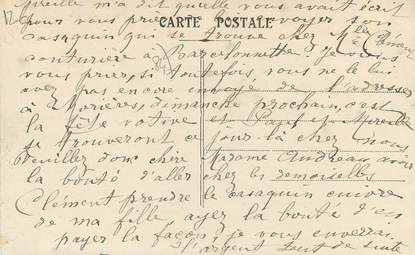 Mireille m'a dit qu'elle vous avait écrit
pour vous prier envoyer son
CARTE POSTALE
casaquin qui se trouve chez Mlle Clément
couturière à Barcelonnette. je vous
vous prier, si toutefois, vous ne le lui
avez pas encore envoyé de l'adresser
à Morières, dimanche prochain, c'est
la fête votive et Paul et Mireille
se trouveront ce jour là chez nous
veuillez donc chère Madame Andreau avoir
la bonté d'aller chez les demoiselles
Clément prendre le casaquin cuivre
de ma fille ayez la bonté d'en
payer la façon, je vous enverrai
l'argent tout de suite